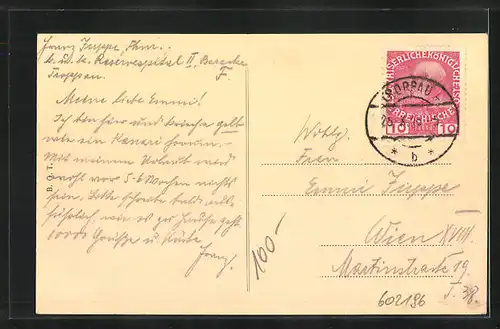 Franz Juppe,
k. u. k. Reservespital II, Baracke F.
Troppau.
Meine liebe Emmi!
Ich bin hier und
wie ein Kanari
Mit meinem Urlaub wird
wohl vor 5-6 Wochen nichts
sein. Bitte schreibe bald aus-
führlich, wie es zu Hause geht.
10000 Grüsse u. Küsse
Franz.
B. O. T.
100-
KAISERLICHE KÖNIGLICHE ÖSTERREICHISCHE
10 HELLER 10
TROPPAU
* b *
Wohlg.
Frau
Emmi Juppe
Wien XVIII.
Martinstrasse 19.
T. 38.
602196